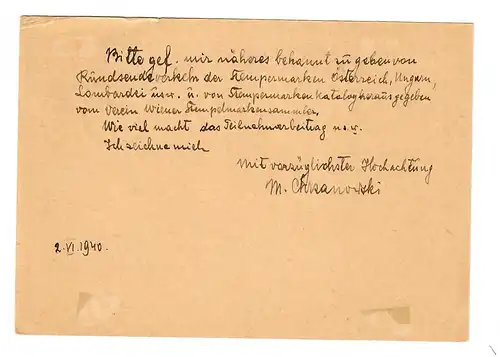 Bitte gef. mir näheres bekannt zu geben von
Rundsendeverkehr der Stempermarken Österreich, Ungarn,
Lombardei usw. u. von Stempermarken Katalog herausgegeben
vom Verein Wiener Stempelmarkensammler.
Wie viel macht das Teilnehmerbeitrag u.s.w.
Ich zeichne mich
Mit vorzüglichster Hochachtung
M. Chrzanowski
2.VI.1940.